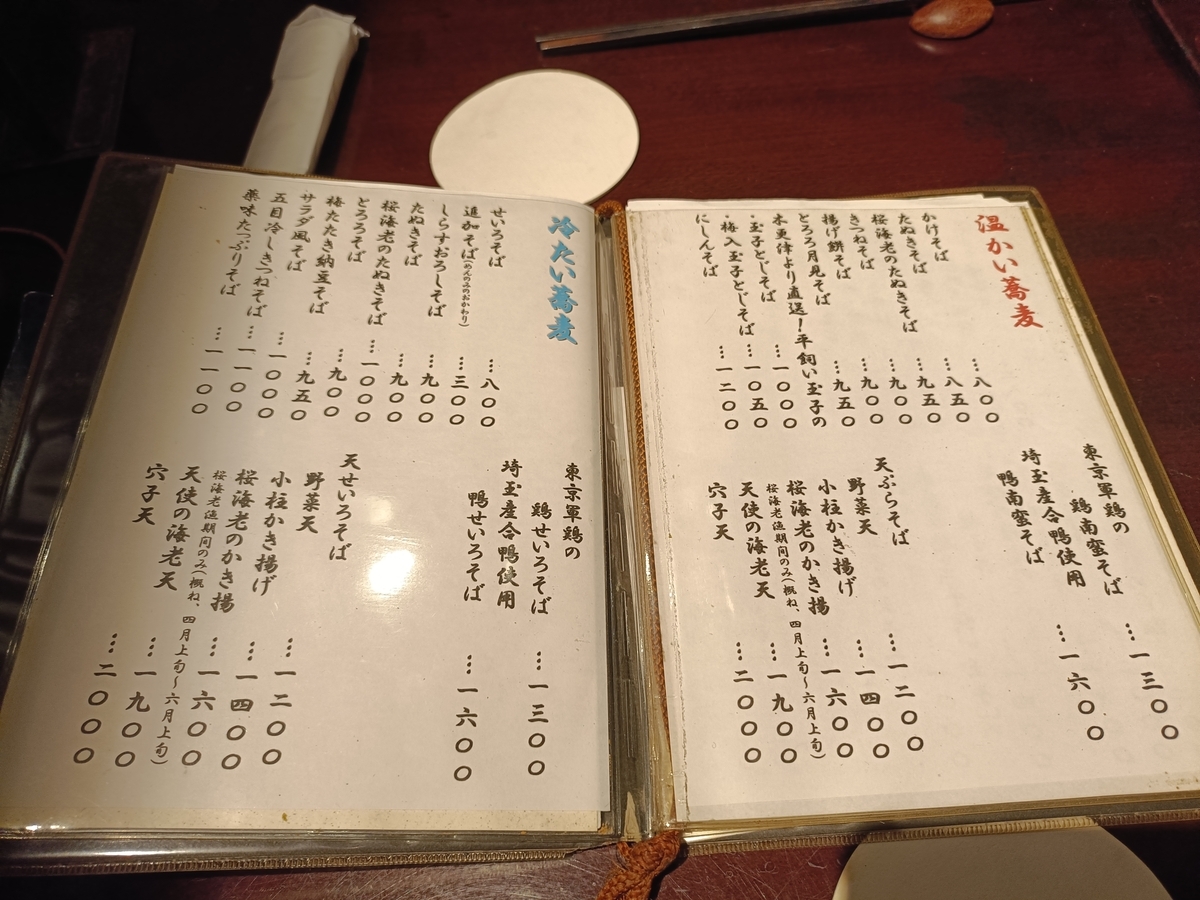 温かい蕎麦
かけそば …八〇〇
たぬきそば …八五〇
桜海老のたぬきそば …九五〇
きつねそば …九〇〇
揚げ餅そば …九〇〇
とろろ月見そば …九五〇
木更津より直送！平飼い玉子の
・玉子とじそば …一〇〇〇
・梅入玉子とじそば …一〇五〇
にしんそば …一二〇〇
東京軍鶏の
鶏南蛮そば …一三〇〇
埼玉産合鴨使用
鴨南蛮そば …一六〇〇
天ぷらそば
野菜天 …一二〇〇
小柱かき揚げ …一四〇〇
桜海老のかき揚 …一六〇〇
桜海老漁期間のみ(概ね、四月上旬～六月上旬)
天使の海老天 …一九〇〇
穴子天 …二〇〇〇
冷たい蕎麦
せいろそば …八〇〇
追加そば(めんのみのおかわり) …三〇〇
しらすおろしそば …九〇〇
たぬきそば …九〇〇
桜海老のたぬきそば …一〇〇〇
とろろそば …九〇〇
梅たたき納豆そば …九五〇
サラダ風そば …一〇〇〇
五目冷しきつねそば …一一〇〇
薬味たっぷりそば …一一〇〇
東京軍鶏の
鶏せいろそば …一三〇〇
埼玉産合鴨使用
鴨せいろそば …一六〇〇
天せいろそば
野菜天 …一二〇〇
小柱かき揚げ …一四〇〇
桜海老のかき揚 …一六〇〇
桜海老漁期間のみ(概ね、四月上旬～六月上旬)
天使の海老天 …一九〇〇
穴子天 …二〇〇〇